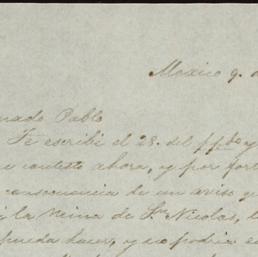 Mexico 9. d
mado Pablo
Te escribí el 28. del ppdo y
contesto ahora, y por fort
consecuencia de un aviso q
la Reina de Sn Nicolas, l
pueda hacer, y no podria e